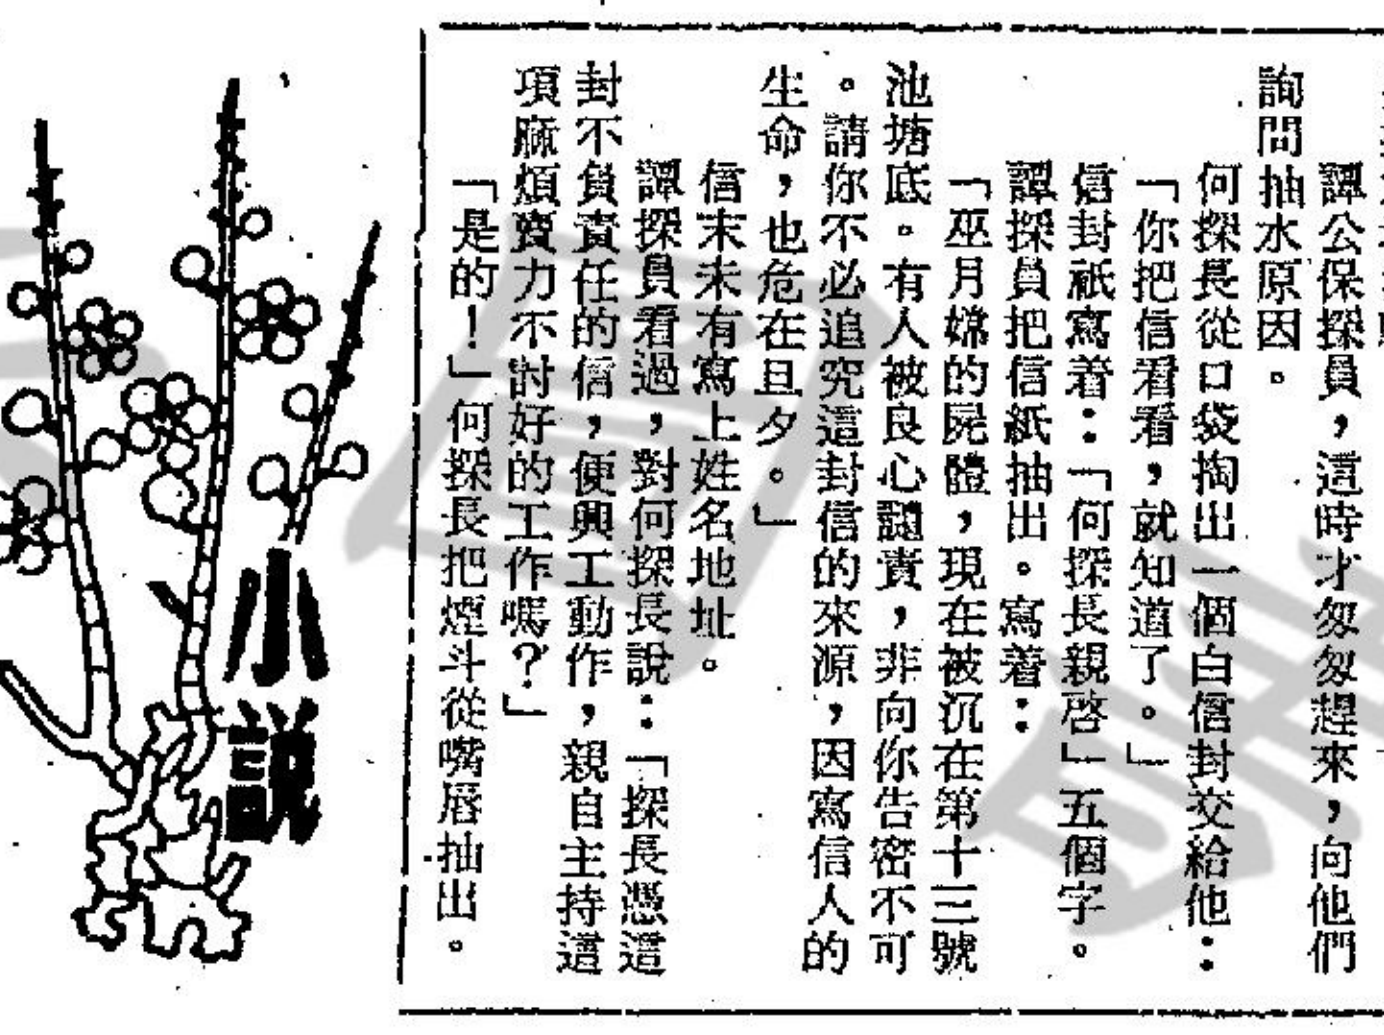 譚公保探員，這時才匆匆趕來，向他們
詢問抽水原因。
何探長從口袋掏出一個白信封交給他：
「你把信看看，就知道了。」
信封祇寫着：「何探長親啓」五個字。
譚探員把信紙抽出。寫着：
「巫月嫦的屍體，現在被沉在第十三號
池塘底。有人被良心譴責，非向你告密不可
。請你不必追究這封信的來源，因寫信人的
生命，也危在旦夕。」
信末未有寫上姓名地址。
譚探員看過，對何探長說：「探長憑這
封不負責任的信，便興工動作，親自主持這
項麻煩賣力不討好的工作嗎？」
「是的！」何探長把煙斗從嘴唇抽出。
小說